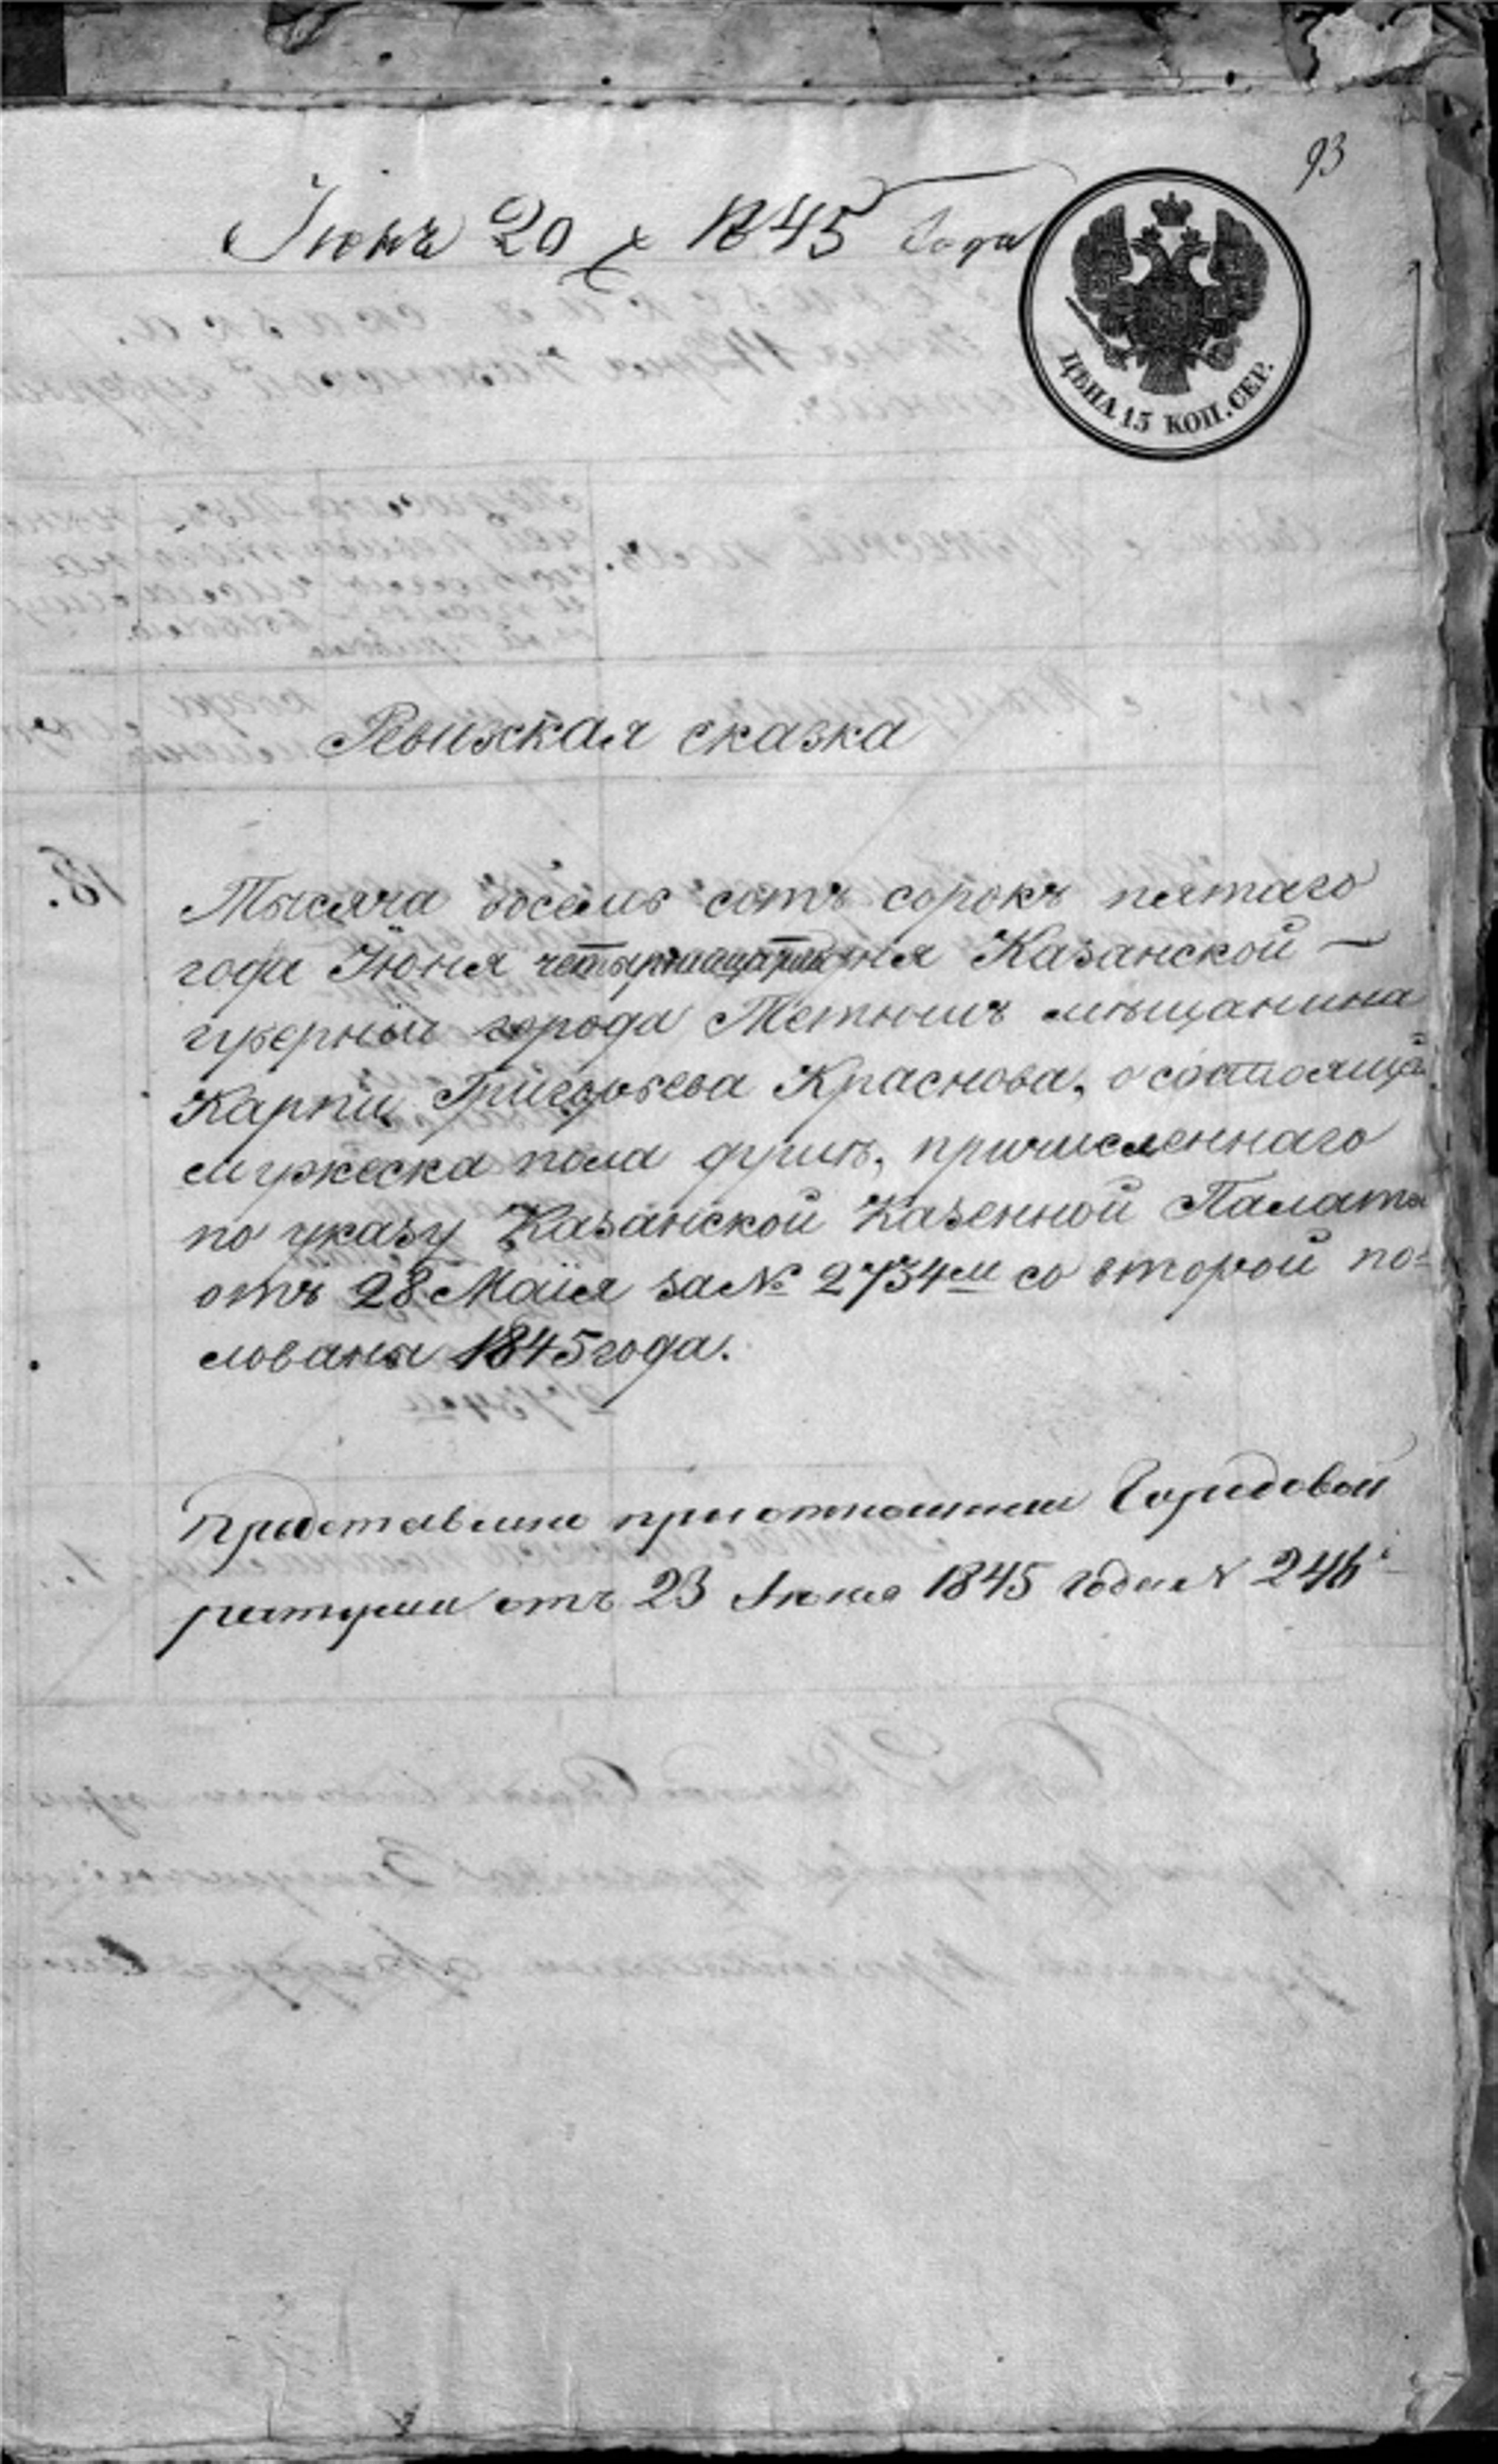 93
Июнь 20 1845 Года
ЦѢНА 15 КОП. СЕР.
Ревизская сказка
Тысяча восемь сотъ сорокъ пятаго
года Іюня четырнадцатаго дня Казанской —
губерніи города Тетюшъ мѣщанина
Карпа Григорьева Краснова, о состоящи
мужеска пола душъ, причисленнаго
по указу Казанской Казенной Палаты
отъ 28 Маія за № 2734м со второй по=
лованы 1845 года.
Представлено при отношении Городовой
ратуши отъ 23 Июня 1845 года №